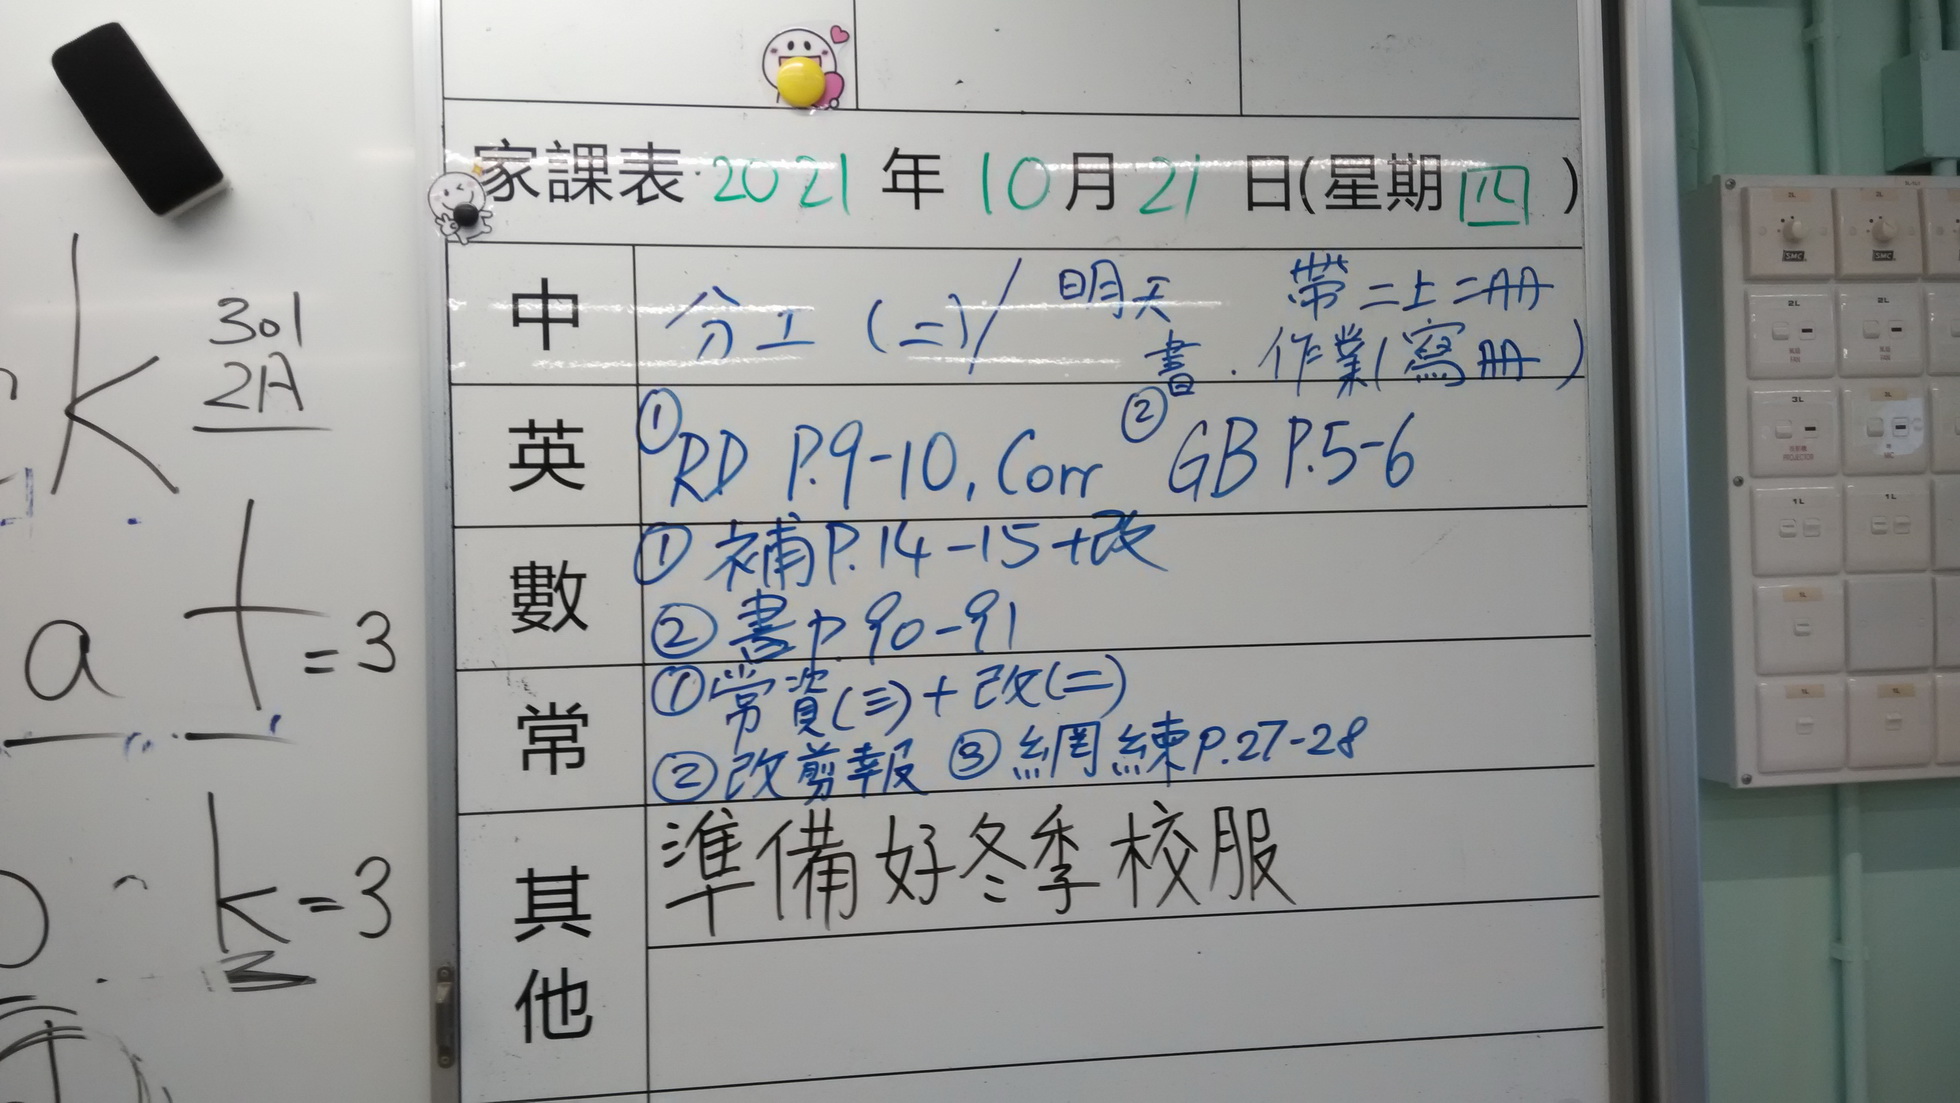 家課表 2021 年 10 月 21 日(星期四)
中
分工 (二) / 明天 帶二上二冊
書. 作業(寫冊)
英
① RD P.9-10, Corr ② GB P.5-6
數
① 補P.14-15+改
② 書P.90-91
常
① 常資(三)+改(二)
② 改剪報 ③ 網練P.27-28
其他
準備好冬季校服
k
301
2A
a t =3
k =3
2L
2L
SMC
SMC
2L
2L
3L
3L
PROJECTOR
1L
1L
1L
1L
1L